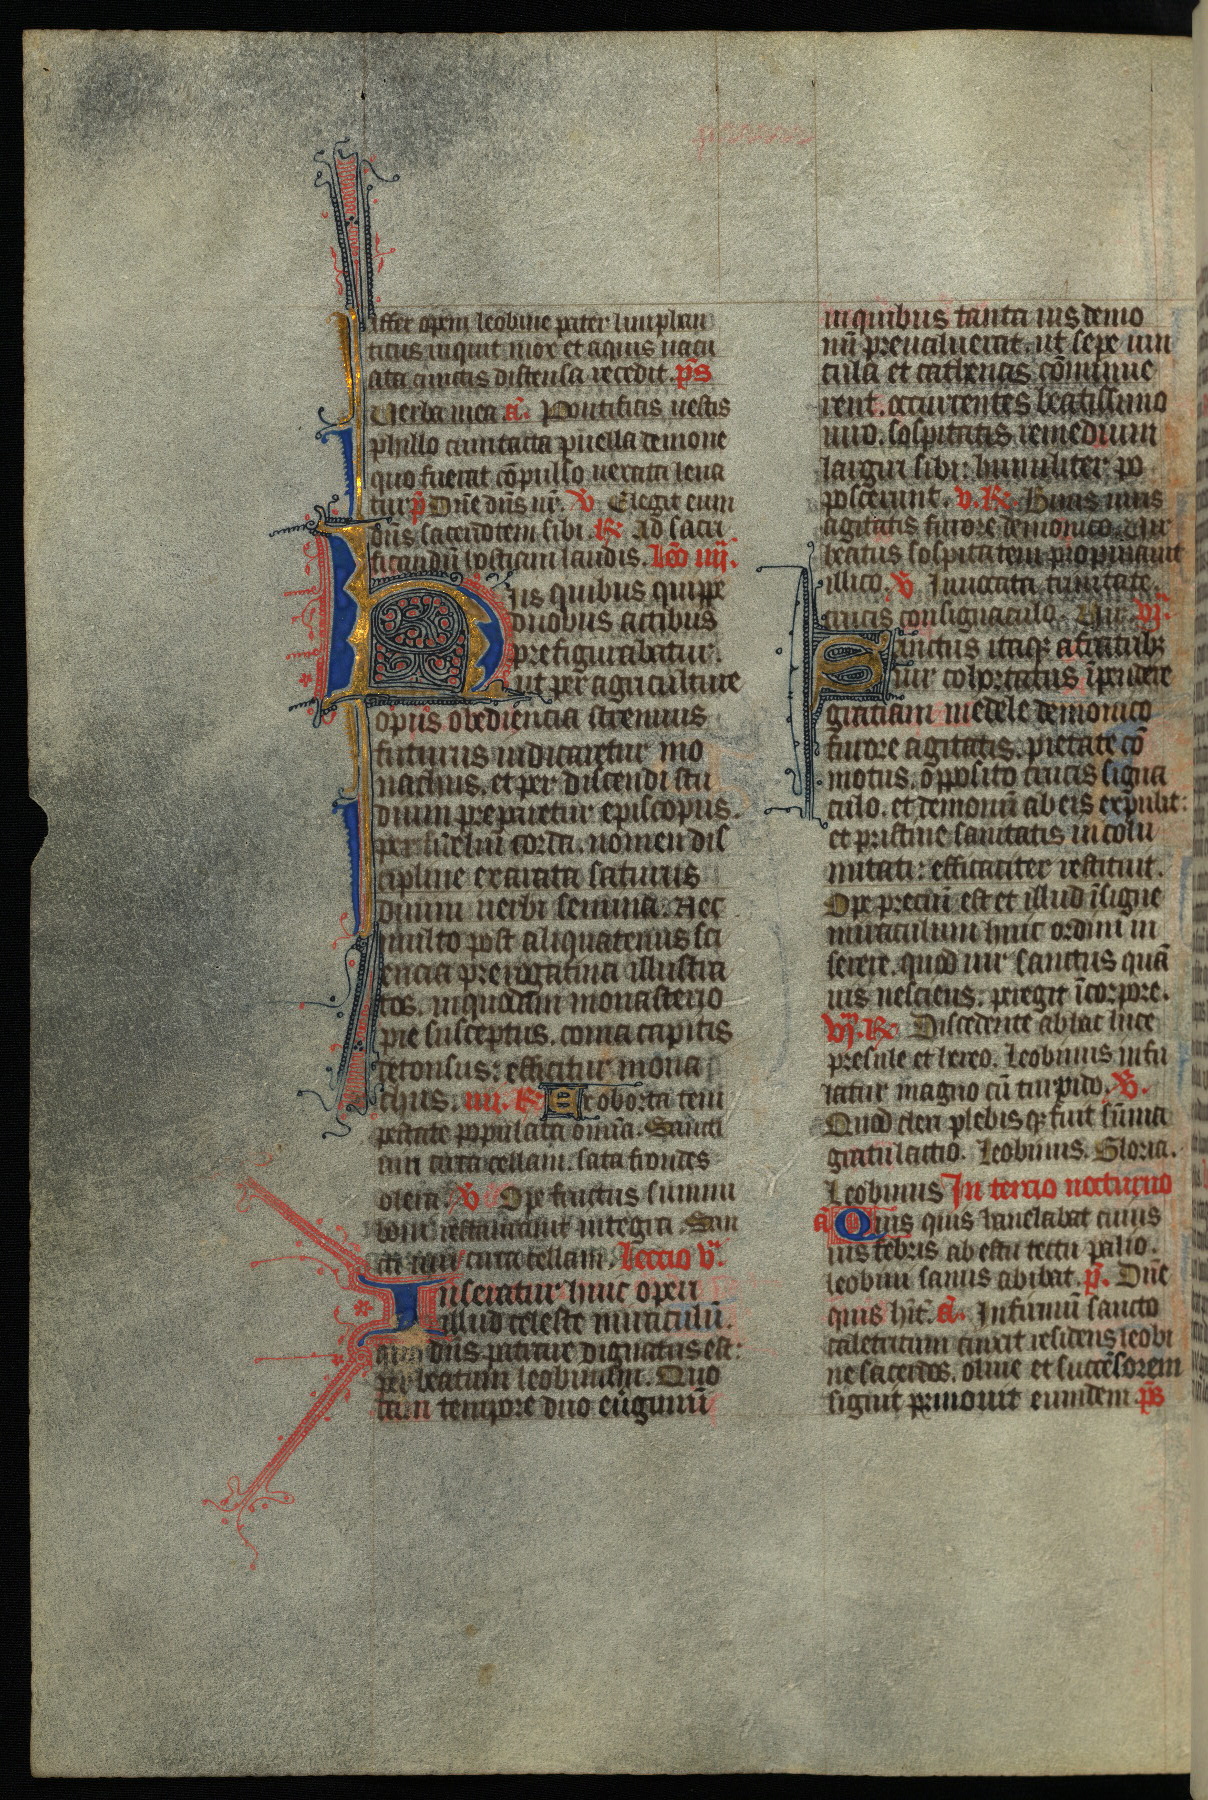 iffer opem leobine pater limphan
ticus inquit mox et aquis uacu
ata cunctis distensa recedit. p̄s
Uerba mea a̅. Pontificis uestis
phillo contacta puella demone
quo fuerat cōpulso uexata leua
tur p̄ Dn̄e dn̄s nr̄. V̄ Elegit eum
dn̄s sacerdotem sibi. R̄ Ad sacri
ficandū hostiam laudis. Lc̄o iiij.
Hiis quibus quippe
duobus actibus
prefigurabatur.
ut per agriculture
operis obediencia strenuus
futurus iudicaretur mo
nachus. et per discendi stu
dium prepararetur episcopus.
per fidelium corda. nomen dis
cipline exarata saturus
diuini uerbi semina. Nec
multo post aliquatenus sci
encia prerogatiua illustra
tos. in quodam monasterio
pie susceptus. coma capitis
detonsus: efficitur mona
chus. iiij. R̄ Eroborta tem
pestate populata omīa. Sancti
uiri circa cellam. sata frondes
olera. V̄ Ope fructus summi
boni restaurant integra. San
cti uiri circa cellam. Leccio v.
Inseratur huic operi
illud celeste miraculū.
quod dn̄s patrare dignatus est:
per beatum leobinum. Quo
dam tempore duo eūgumū
in quibus tanta uis demo
nū preualuerat. ut sepe uin
cula et cathenas cōminue
rent. occurrentes beatissimo
uiro. sospitatis remedium
largiri sibi: humiliter po
poscerunt. v. R̄. Huius uiris
agitatis furore demonico. Uir
beatus sospitatem propinauit
illico. V̄ Inuocata trinitate
crucis consignaculo. Uir. vj.
Sanctus itaque a fratribus
uir cohortatus īpendere
gratiam medele demonico
furore agitatis. pietate cō
motus. opposito crucis signa
culo. et demoniū ab eis expulit:
et pristine sanitatis incolu
mitati: efficaciter restituit.
Ope preciū est et illud īsigne
miraculum huic ordini in
serere. quod uir sanctus quā
uis nesciens: peregit ī corpore.
vj. R̄ Discedente ab hac luce
presule ethereo. Leobinus infu
latur magno cū turpido. V̄.
Quod cleri plebisque fuit sūma
gratulatio. Leobinus. Gloria.
Leobinus In tercio nocturno
a̅ Quis quis hanelabat cuius
uis febris ab estu tectu palio.
leobini sanus abibat. p̄. Dn̄e
quis hīt. a̅. Infirmū sancto
caletricum tinxit residens leobi
ne sacerdos. oliue et succēsorem
signit prmouit eumdem p̄s